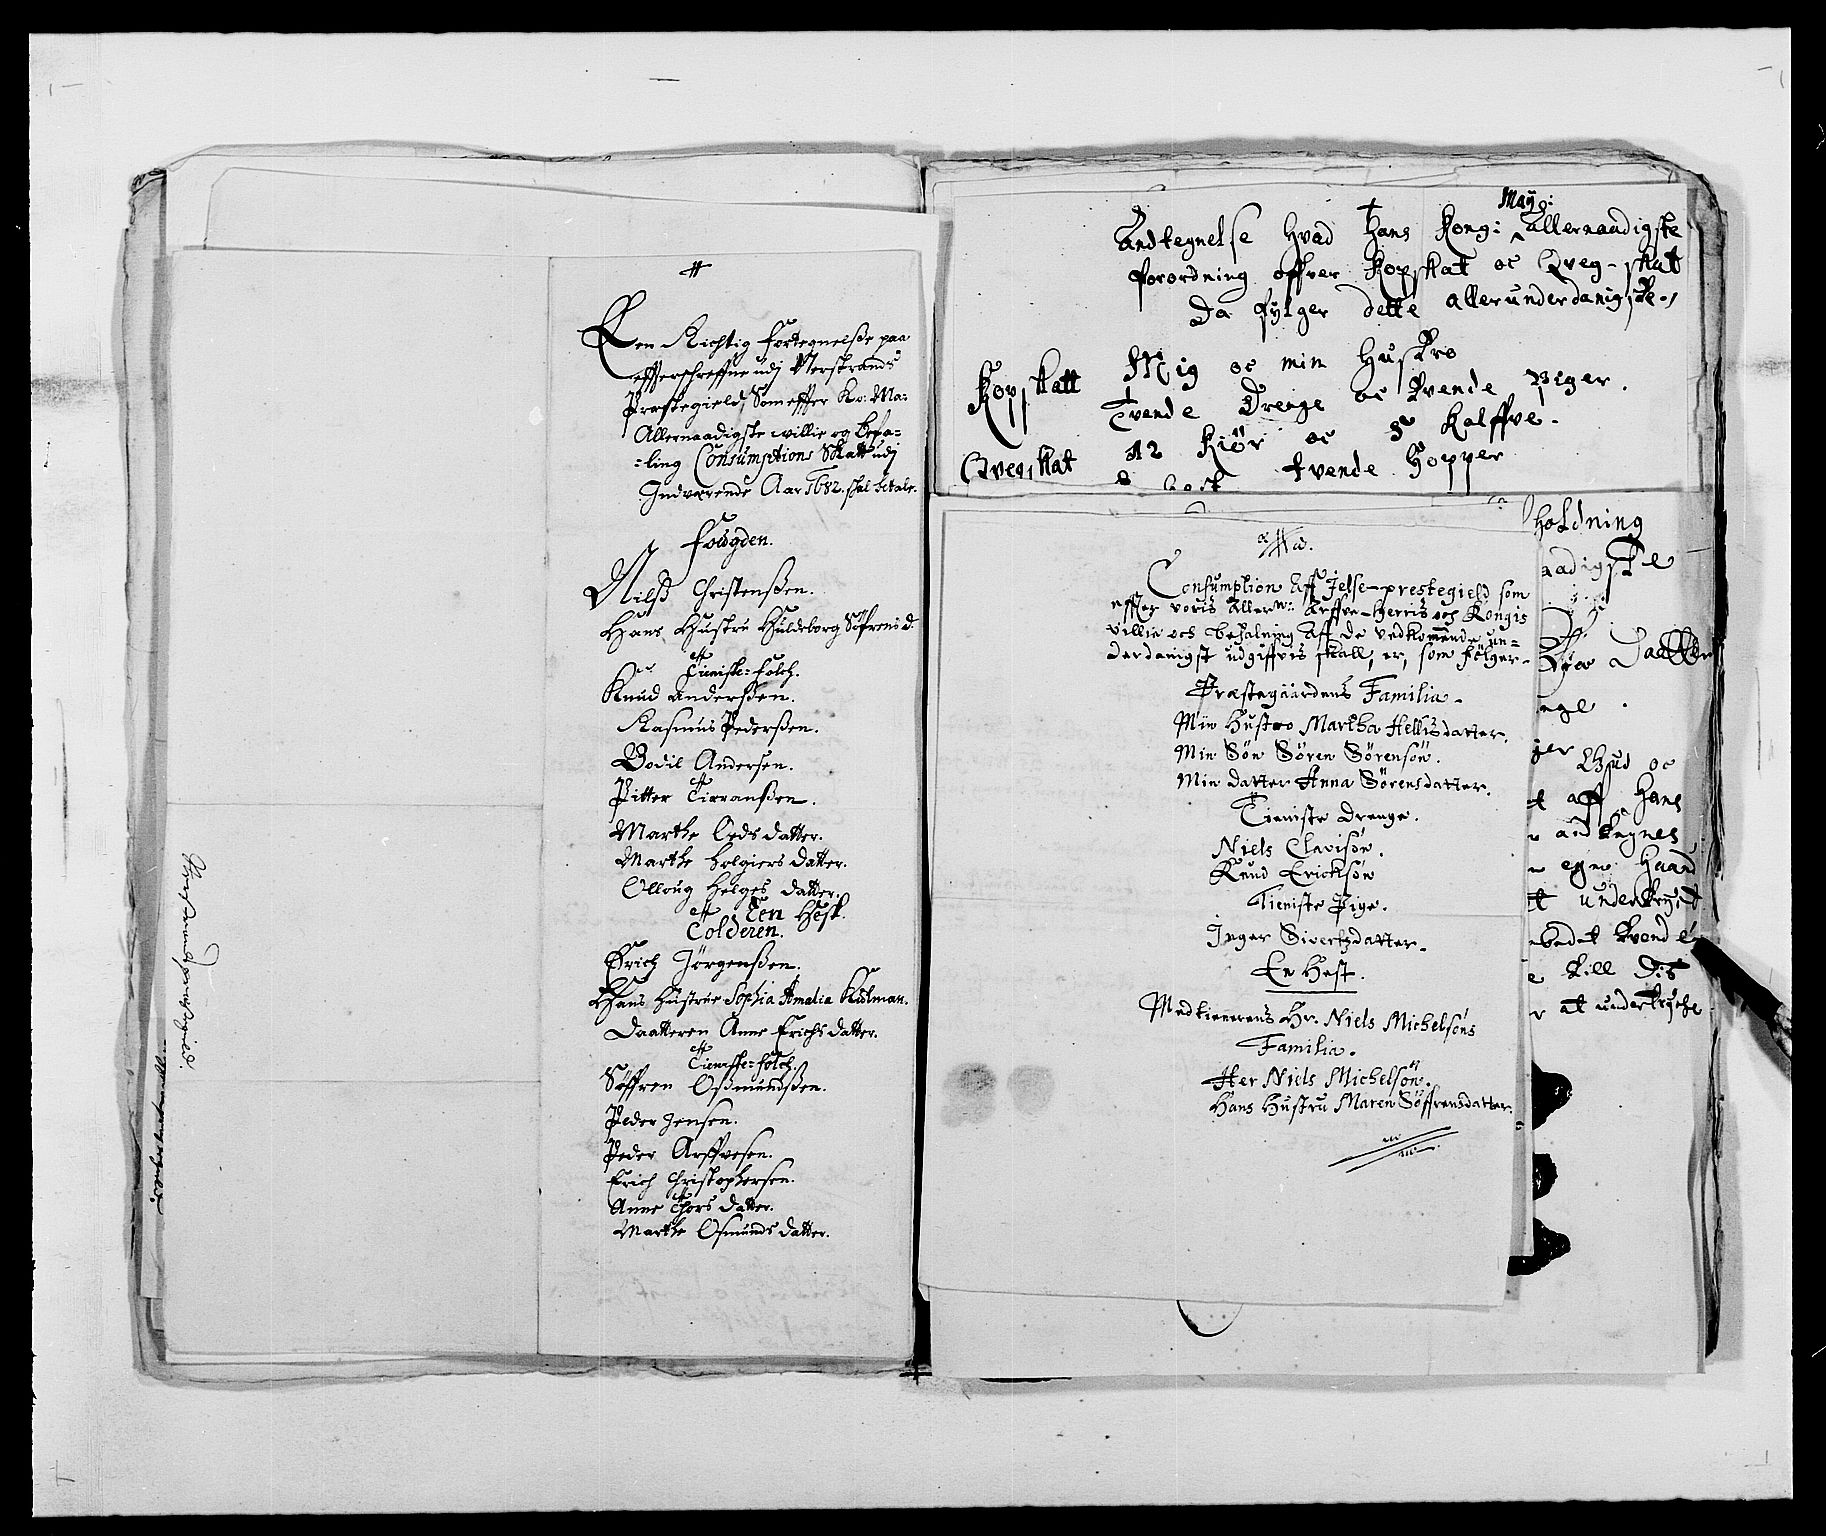 Een Richtig Fortegnelsse paa
effterschreffne udj Nerstrands
Præstegield, Som effter Ko: Ma:
Allernaadigste willie og befa-
-ling Consumptions Skatt udj
Indværende Aar 1682. skal betale.
Fougden.
Nilss Christenssen.
Hans Hustru Hildeborg Söfrens d.
Tieniste-folch.
Knud Anderssen.
Rasmus Pederssen.
Bodil Andersen.
Pitter
Marthe datter.
Marthe Holgiers datter.
Olloug Helges datter.
Een Hest.
Erich Jörgenssen.
Hans Hustrue Sophia Amalia Kulman.
Daatteren Anne Erichs datter.
Tieniste-folch.
Söffren Ossmundssen.
Peder Jensen.
Peder Arffvesen.
Erich Christophersen.
Anne Thors datter.
Marthe Osmunds datter.
May:
Andtegnelse hvad Hans Kong: Allernaadigste
forordning offver Kopskat oc Qveg-skat
Da fylger dette allerunderdanigste
Kopskatt Mig oc min Hustro
Tvende Drenge oc tvende Piger.
Qvegskat 12 Kiör oc 8 Kalffve.
tvende Hopper
holdning
aadigste
Consumption Aff Jelse-prestegield som
effter voris Allern: Arffve-Herris och Kongis
villie och befalning Aff de vedkommende un-
derdanigst udgiffvis skall, er, som fölger.
Præstegaardens Familia.
Min Hustro Martha Hellisdatter.
Min Sön Sören Sörensön.
Min datter Anna Sörensdatter.
Tieniste Drenge.
Niels Clavisön.
Knud Ericksön
Tieniste Pige.
Inger Sivertzdatter.
En Hest.
Medtienerens Hr. Niels Michelsöns
Familia.
Her Niels Michelsön.
Hans Hustru Maren Söffrensdatter.
Gud oc
aff Hans
egen Haand
till Dis